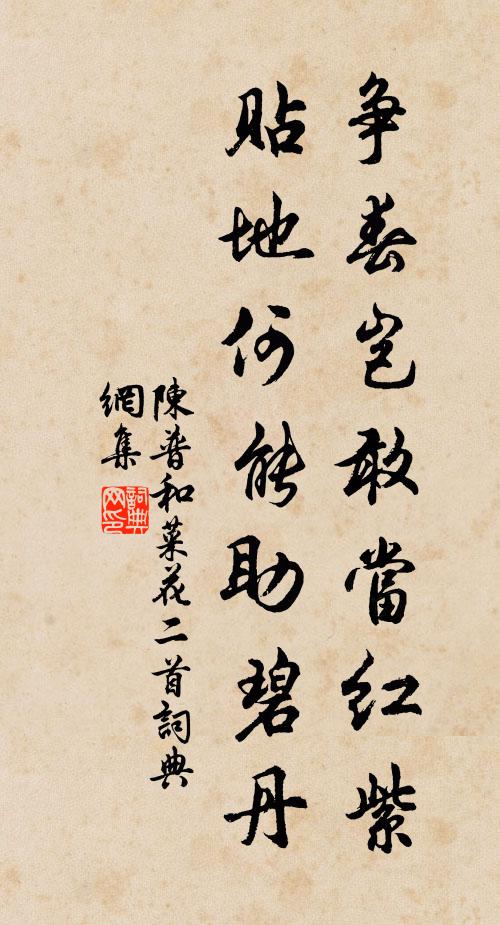 争春岂敢當红紫
貼地何能助碧丹
陳普和菜花二首詞典
網集
詞典网印